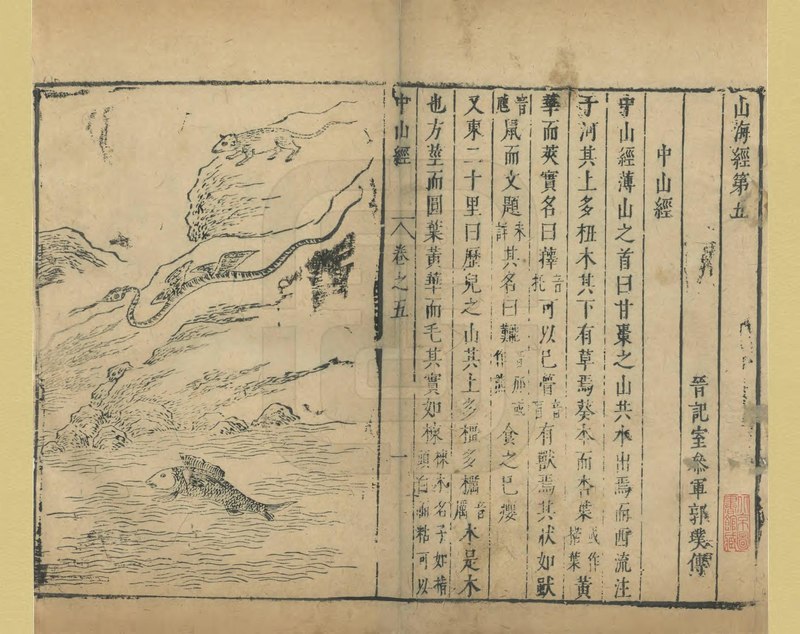 山海經第五
晉記室參軍郭璞傳
中山經
中山經薄山之首曰甘棗之山共水出焉而西流注
于河其上多杻木其下有草焉葵本而杏葉或作楛葉黃
華而莢實名曰籜音托可以已瞢音盲有獸焉其狀如䶂
音虺鼠而文題其名曰難食之已癭
又東二十里曰歷兒之山其上多橿多櫔音厲木是木
也方莖而圓葉黃華而毛其實如楝楝木名子如指頭白而粘可以
中山經 卷之五 一